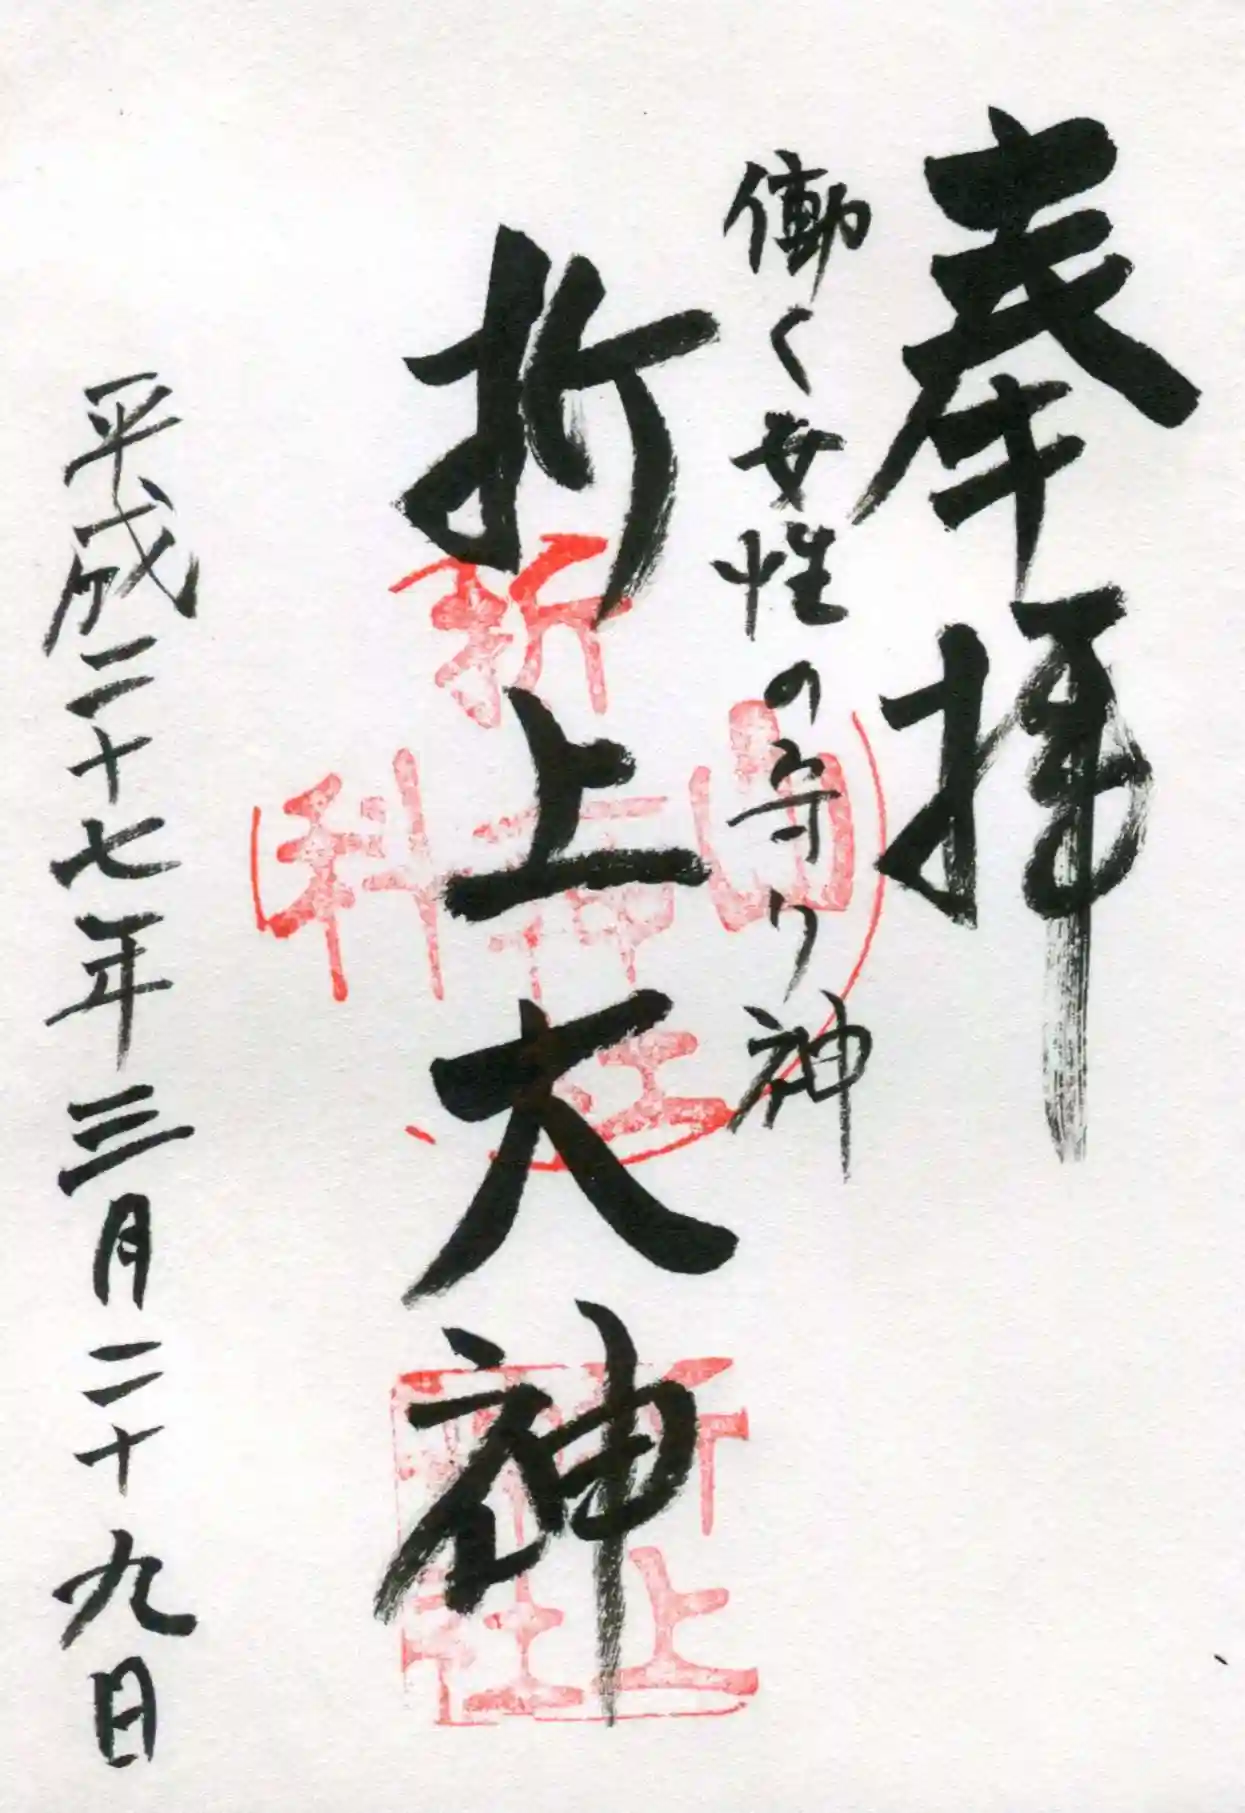 奉拝
働く女性の守り神
折上大神
平成二十七年三月二十九日
山科
折上神社
折上
神社